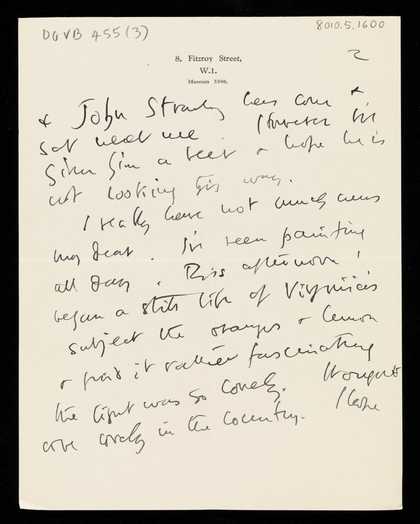 DGVB 455(3)
8010.5.1600
8, Fitzroy Street,
W.1.
2
& John Strachey has come &
sat next me. However I've
given him a seat & hope he is
not looking this way.
I really have not much news
my dear. I've been painting
all day. This afternoon I
began a still life of Virginia's
subject the oranges & lemon
& find it rather fascinating
the light was so lovely.
lovely in the country. I hope